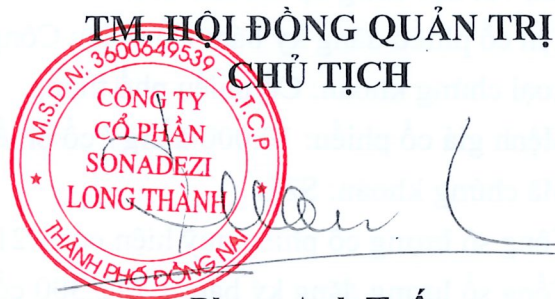 TM. HỘI ĐỒNG QUẢN TRỊ
CHỦ TỊCH
M.S.D.N: 3600649539 - C.T.C.P
CÔNG TY
CỔ PHẦN
SONADEZI
LONG THÀNH
THÀNH PHỐ ĐỒNG NAI